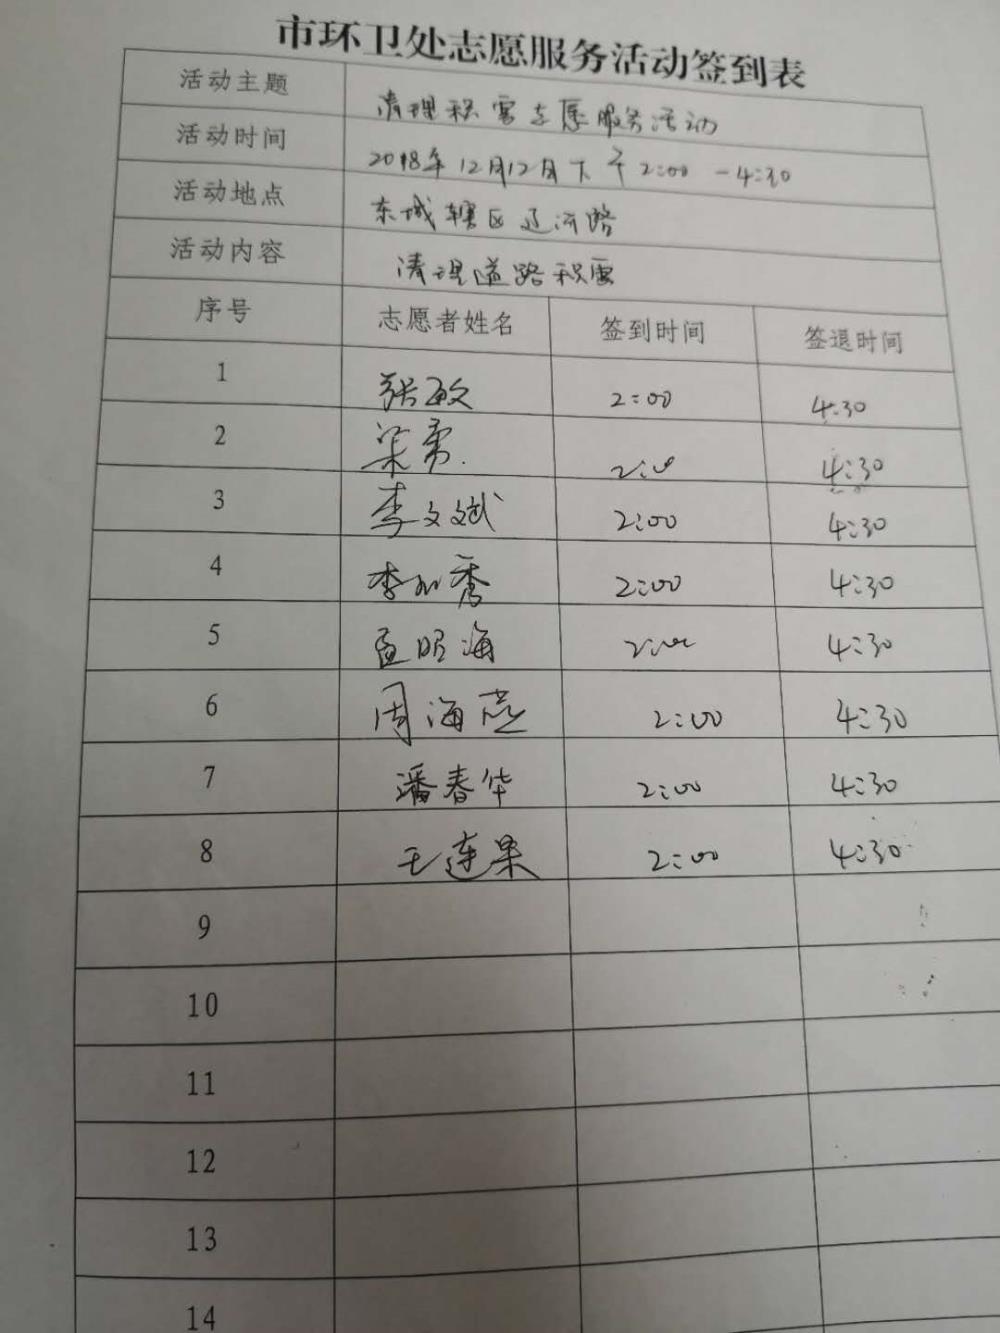 市环卫处志愿服务活动签到表
活动主题 清理积雪志愿服务活动
活动时间 2018年12月12月下午2:00-4:30
活动地点 东城辖区辽河路
活动内容 清理道路积雪
序号 志愿者姓名 签到时间 签退时间
1 张敏 2:00 4:30
2 梁 2:00 4:30
3 李文斌 2:00 4:30
4 李秀 2:00 4:30
5 孟昭海 2:00 4:30
6 周海燕 2:00 4:30
7 潘春华 2:00 4:30
8 王连果 2:00 4:30
9
10
11
12
13
14